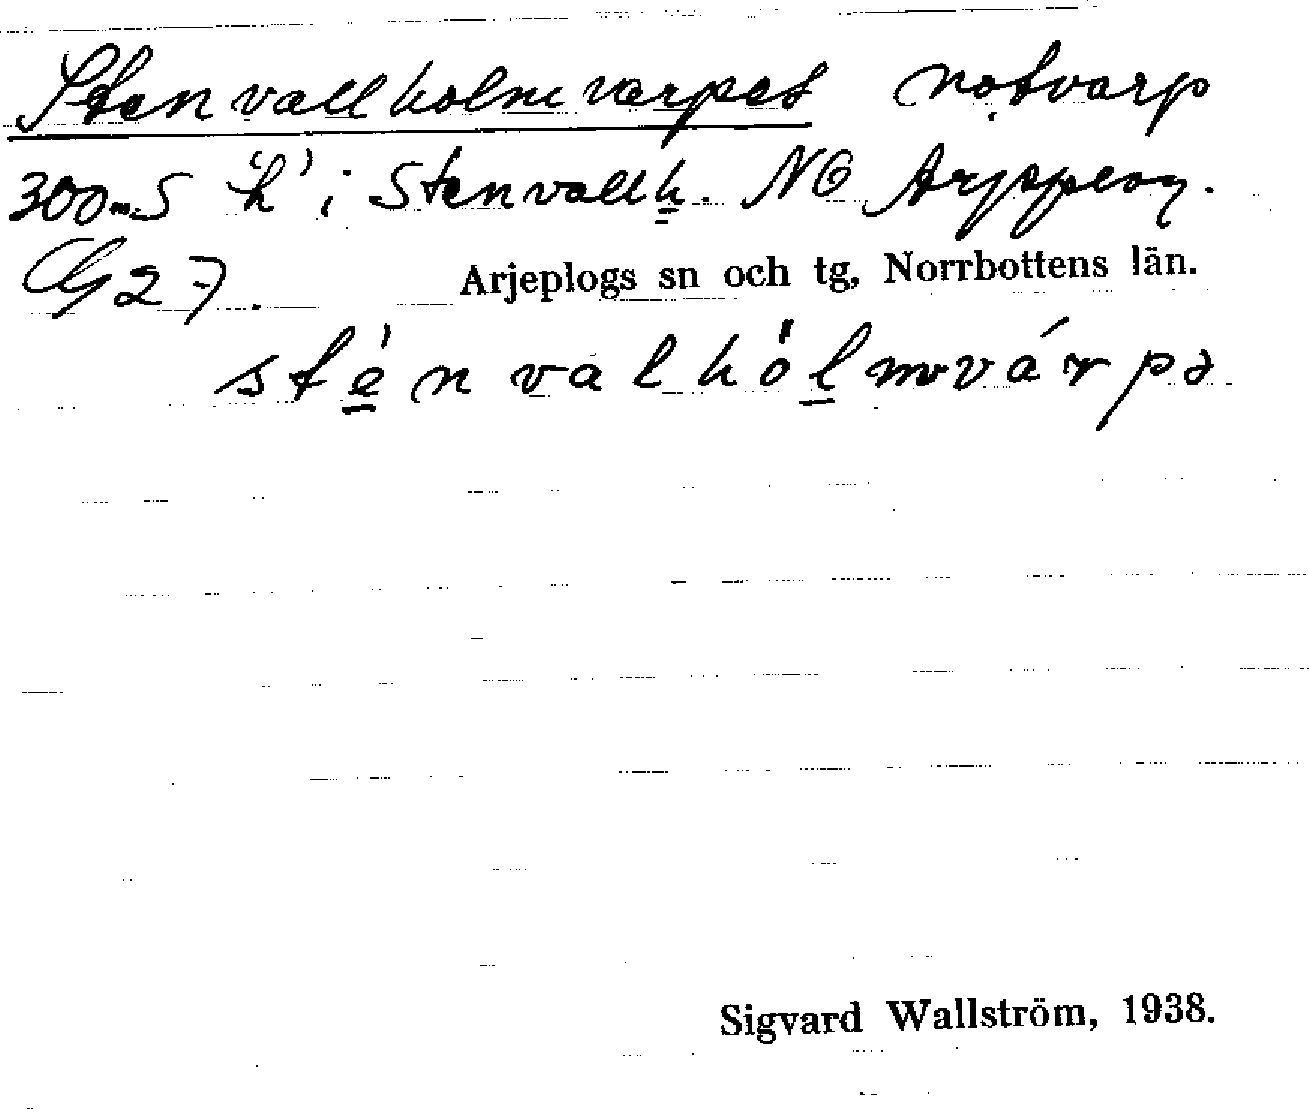 Stenvallholmvarpet notvarp
300 m S 'h' i Stenvallh. NO Arjeplog.
27.
Arjeplogs sn och tg, Norrbottens län.
Sigvard Wallström, 1938.